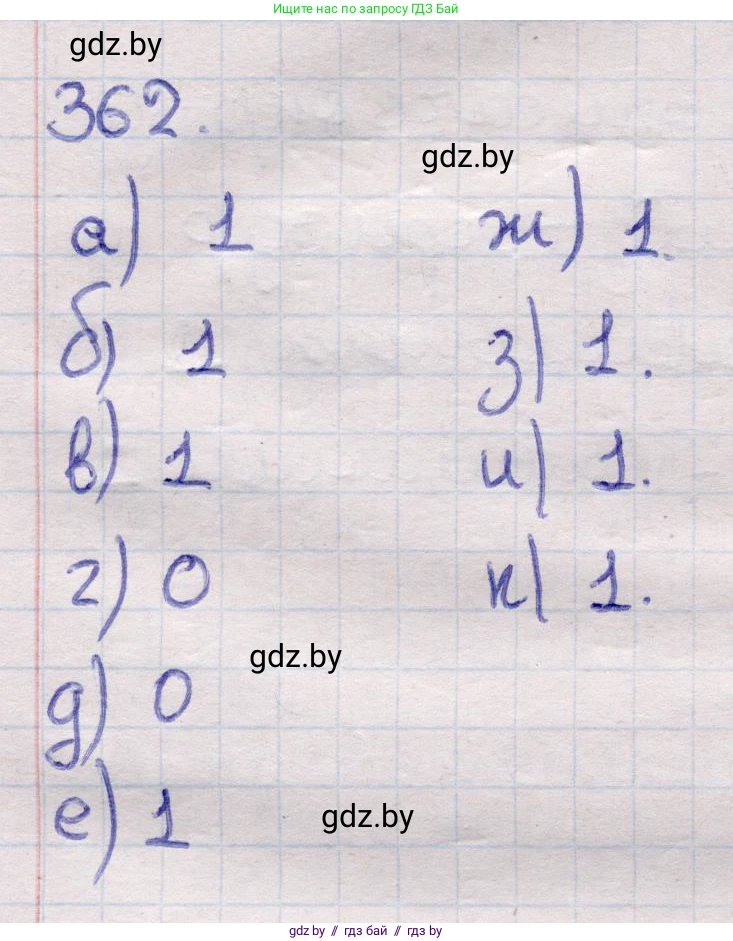 Ищите нас по запросу ГДЗ Бай
gdz.by
362.
gdz.by
а) 1
б) 1
в) 1
г) 0
gdz.by
д) 0
е) 1
gdz.by
ж) 1.
з) 1.
и) 1.
к) 1.
gdz.by // гдз бай // gdz.by